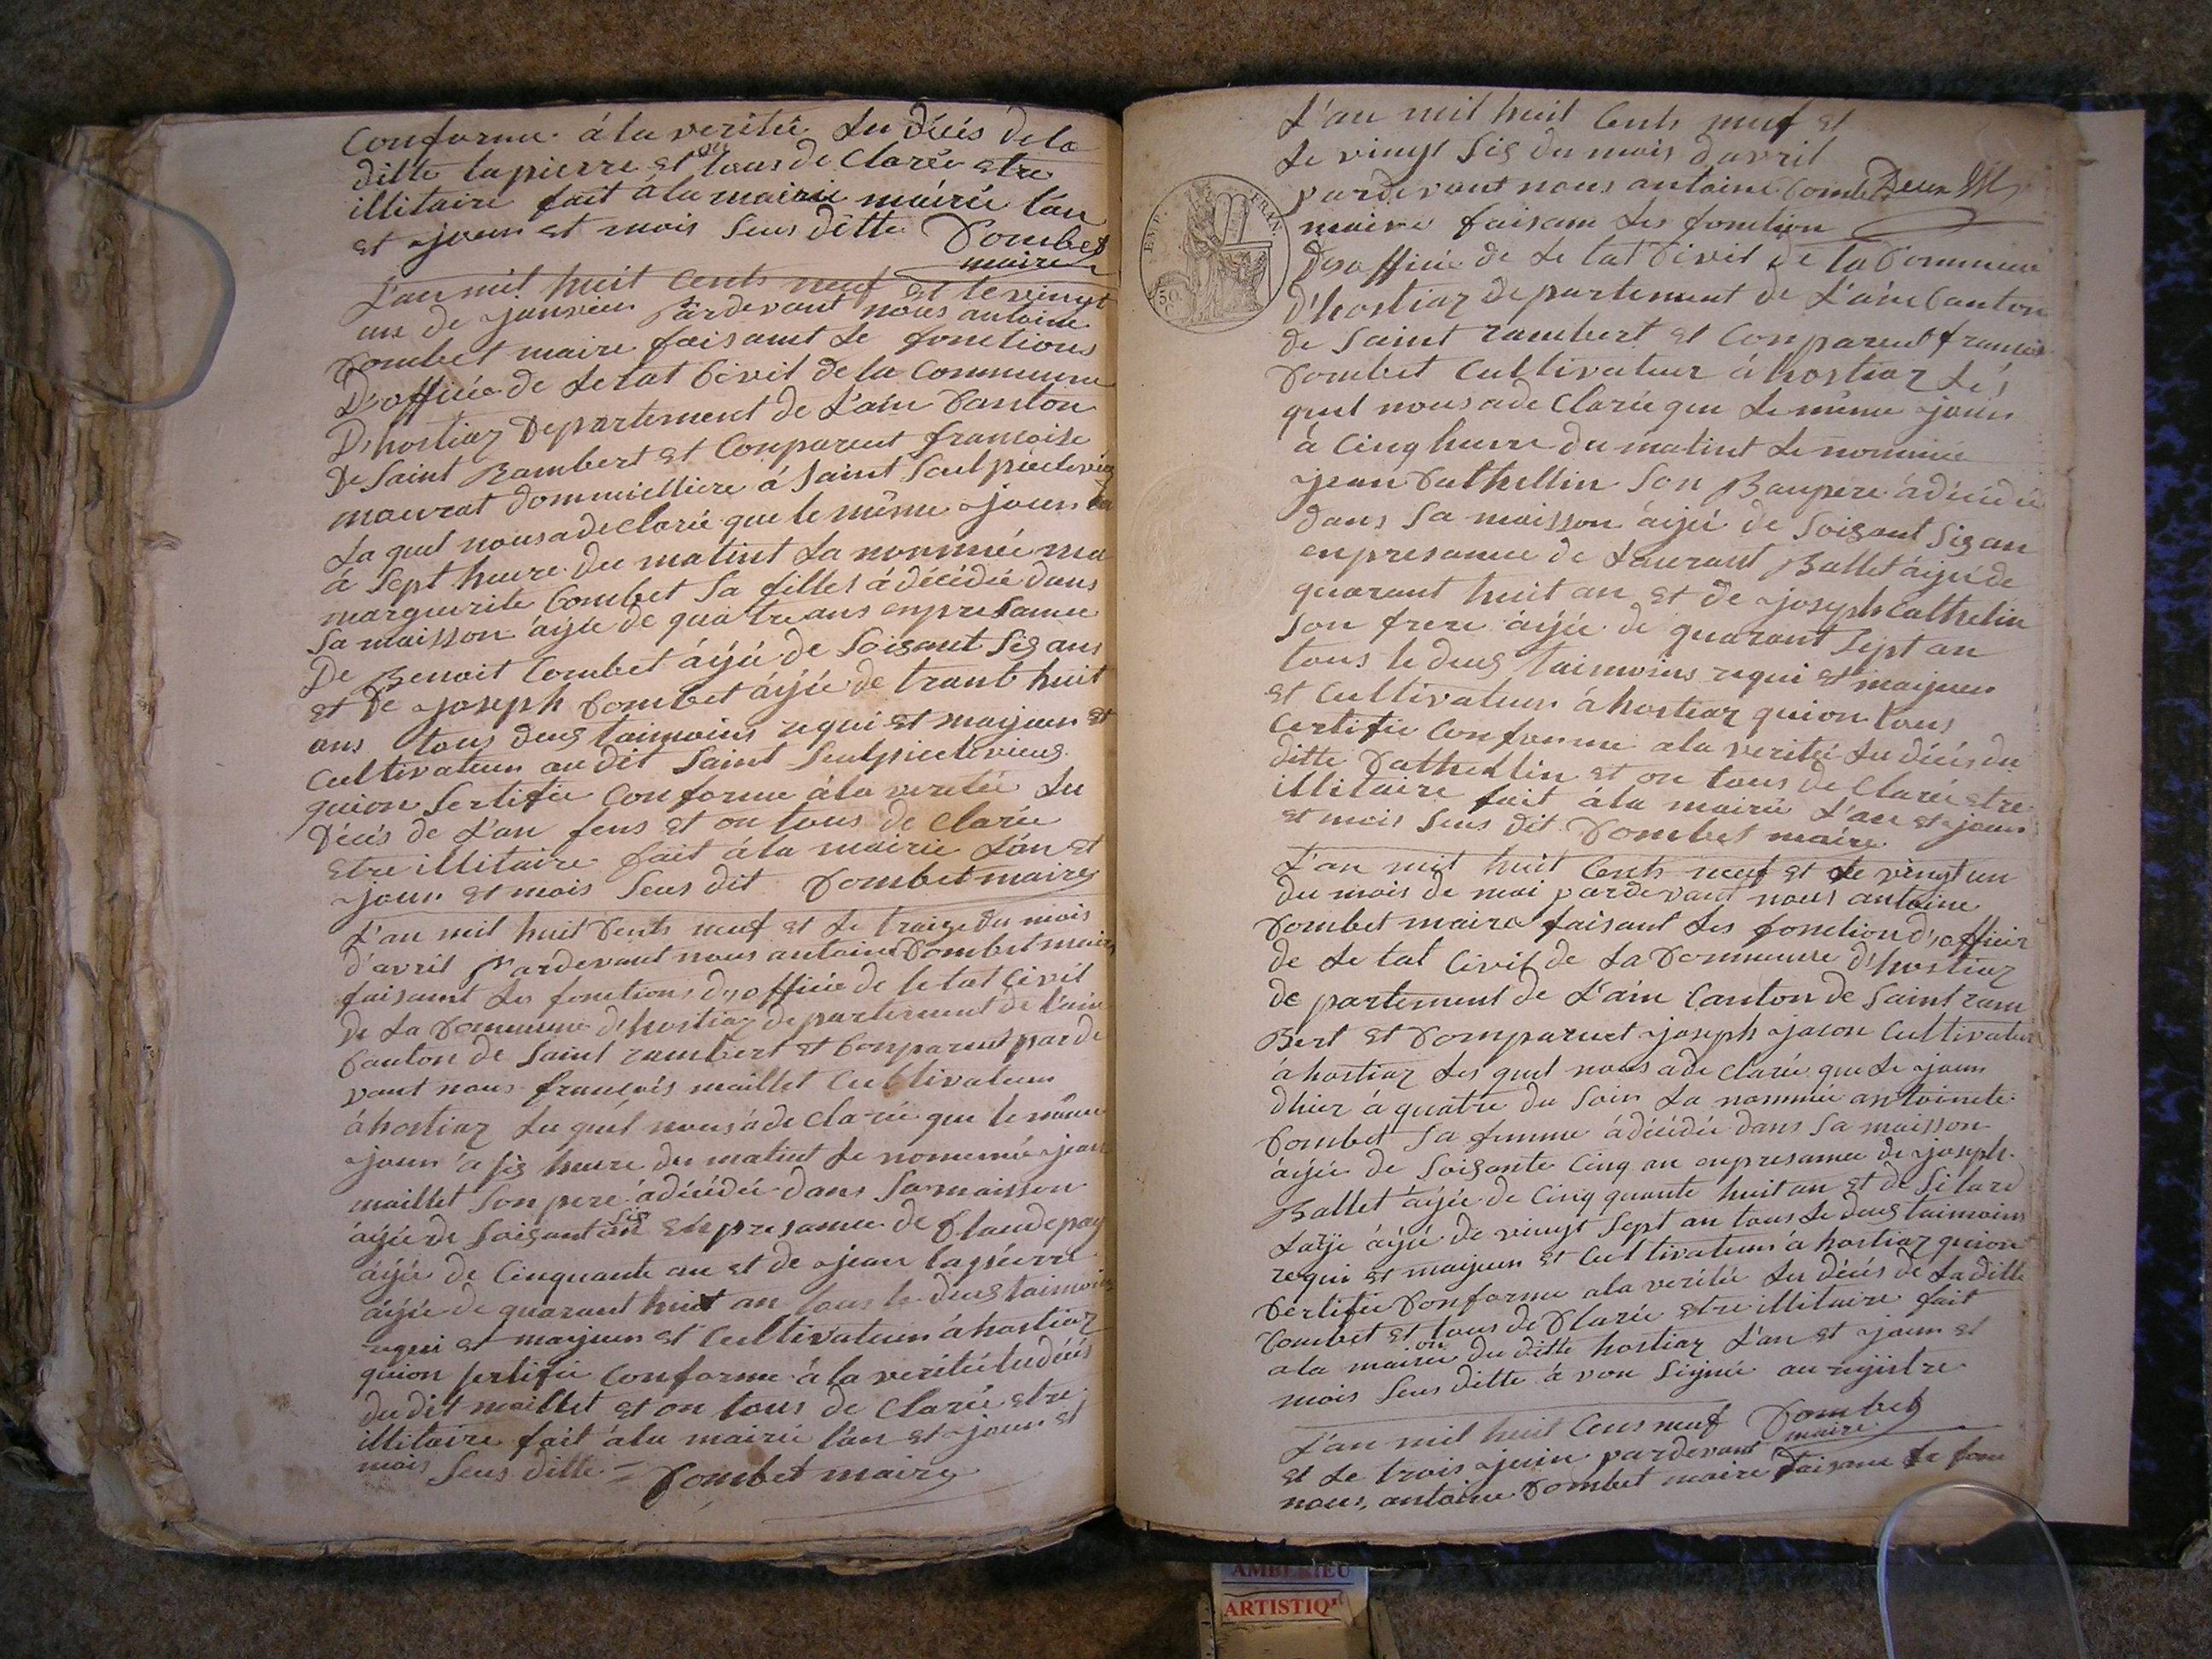 Conforme á la veritée du décés de la
ditte lapierre et on tous de Clarée etre
illitaire fait á la mairie mairie l'an
et jour et mois Seus ditte Combet
maire
L'an mil huit Cents neuf et le vingt
un de janvier Pardevant nous antoine
Combet maire faisant le fonctions
D'officié de Letat Civil de la Commune
D'hostiaz Departement de L'ain Canton
De Saint Rambert et Conparent francoise
mouvrat dommicilliere á Saint Soulpicelevieu
La quel nousadeclarée que le même jour
á Sept heure du matint La nommée ma
marguerite Combet Sa filles á décédée dans
Sa maisson âijée de quatre ans enpresamce
De Benoit Combet áijée de Soisant Sis ans
et De joseph Combet áijée de trant huit
ans tous deus taimoins requi et majeur et
Cultivateur au dit Saint Seulpicelevieus
quion Sertifiée Conforme á la veritée du
Décés de L'an fens et on tous de clarée
etre illitaire fait á la mairie L'an et
jour et mois Seus dit Combet maire
L'an mil huit Cents neuf et Le traize du mois
d'avril Pardevant nous antoine Combet maire
faisant Les fonctions d'officié de letat Civil
de La Commune d'hostiaz departement de l'ain
Canton de Saint rambert et Conparent parde
vant nous francois maillet Cultivateur
á hostiaz Le quel nous á de clarée que le même
jour á sis heure du matint Le nommé jean
maillet Son pere á décédée dans Sa maisson
áijée de Soisant sis an enpresamce de Claude pay
áijée de Cinquante an et de jean lapierre
áijée de quarant huit an tous le deus taimoins
requi et majeur et Cultivateur á hostiaz
quion Sertifiée Conforme á la veritée du décés
du dit maillet et on tous de Clarée etre
illitaire fait á la mairie l'an et jour et
mois Seus ditte = Combet maire
L'an mil huit Cents neuf et
Le vingt Sis du mois davril
pardevant nous antoine Combet
maire faisam Les fonction
Desofficié de Le tat Civil de la Commune
D'hostiaz departement de L'ain Canton
de Saint rambert et Conparent francois
Combet Cultivateur á hostiaz Les
quel nous ade Clarée que Le même jour
á Cinq heure du matint Le nommée
jean Cathellin Son Baupere á décédée
dans Sa maisson áijé de Soisant Sis an
enpresamce de Laurant Ballet áijé de
quarant huit an et de joseph Cathelin
Son frere áijée de quarant Sept an
tous le deus taimoins requi et majeur
et Cultivateur á hostiaz quion tous
Certifiée Conforme a la veritée du décés du
ditte Cathellin et on tous de Clarée etre
illitaire fait á la mairie L'an et jour
et mois Seus dit Combet maire
L'an mil huit Cents neuf et Le vingt un
du mois de mai pardevant nous antoine
Combet maire faisant Les fonction d'officier
de Le tat Civil de La Commune d'hostiaz
de partement de L'ain Canton de Saint ram
Bert et Comparuct joseph jacon Cultivateur
a hostiaz Les quel nous ade clarée que Le jour
dhier á quatre du Soir La nommée antoinete
Combet Sa femme á décédée dans Sa maisson
áijée de Soisante Cinq an enpresamce de joseph
Ballet áijée de Cinq quante huit an et de Silard
Larje áijé de vingt Sept an tous Le deus taimoins
requi et majeur et Cultivateur á hostiaz quion
Certifiée Conforme a la veritée du décés de La ditte
Combet et on tous de Clarée etre illitaire fait
a la mairie du ditte hostiaz L'an et jour et
mois Seus ditte á von Signée au rejistre
L'an mil huit Cens neuf Combet
maire
et Le trois juin pardevant
nous antoine Combet maire faisant Le fonc
EMP. FRAN.
50
C
AMBERIEU
ARTISTIQ